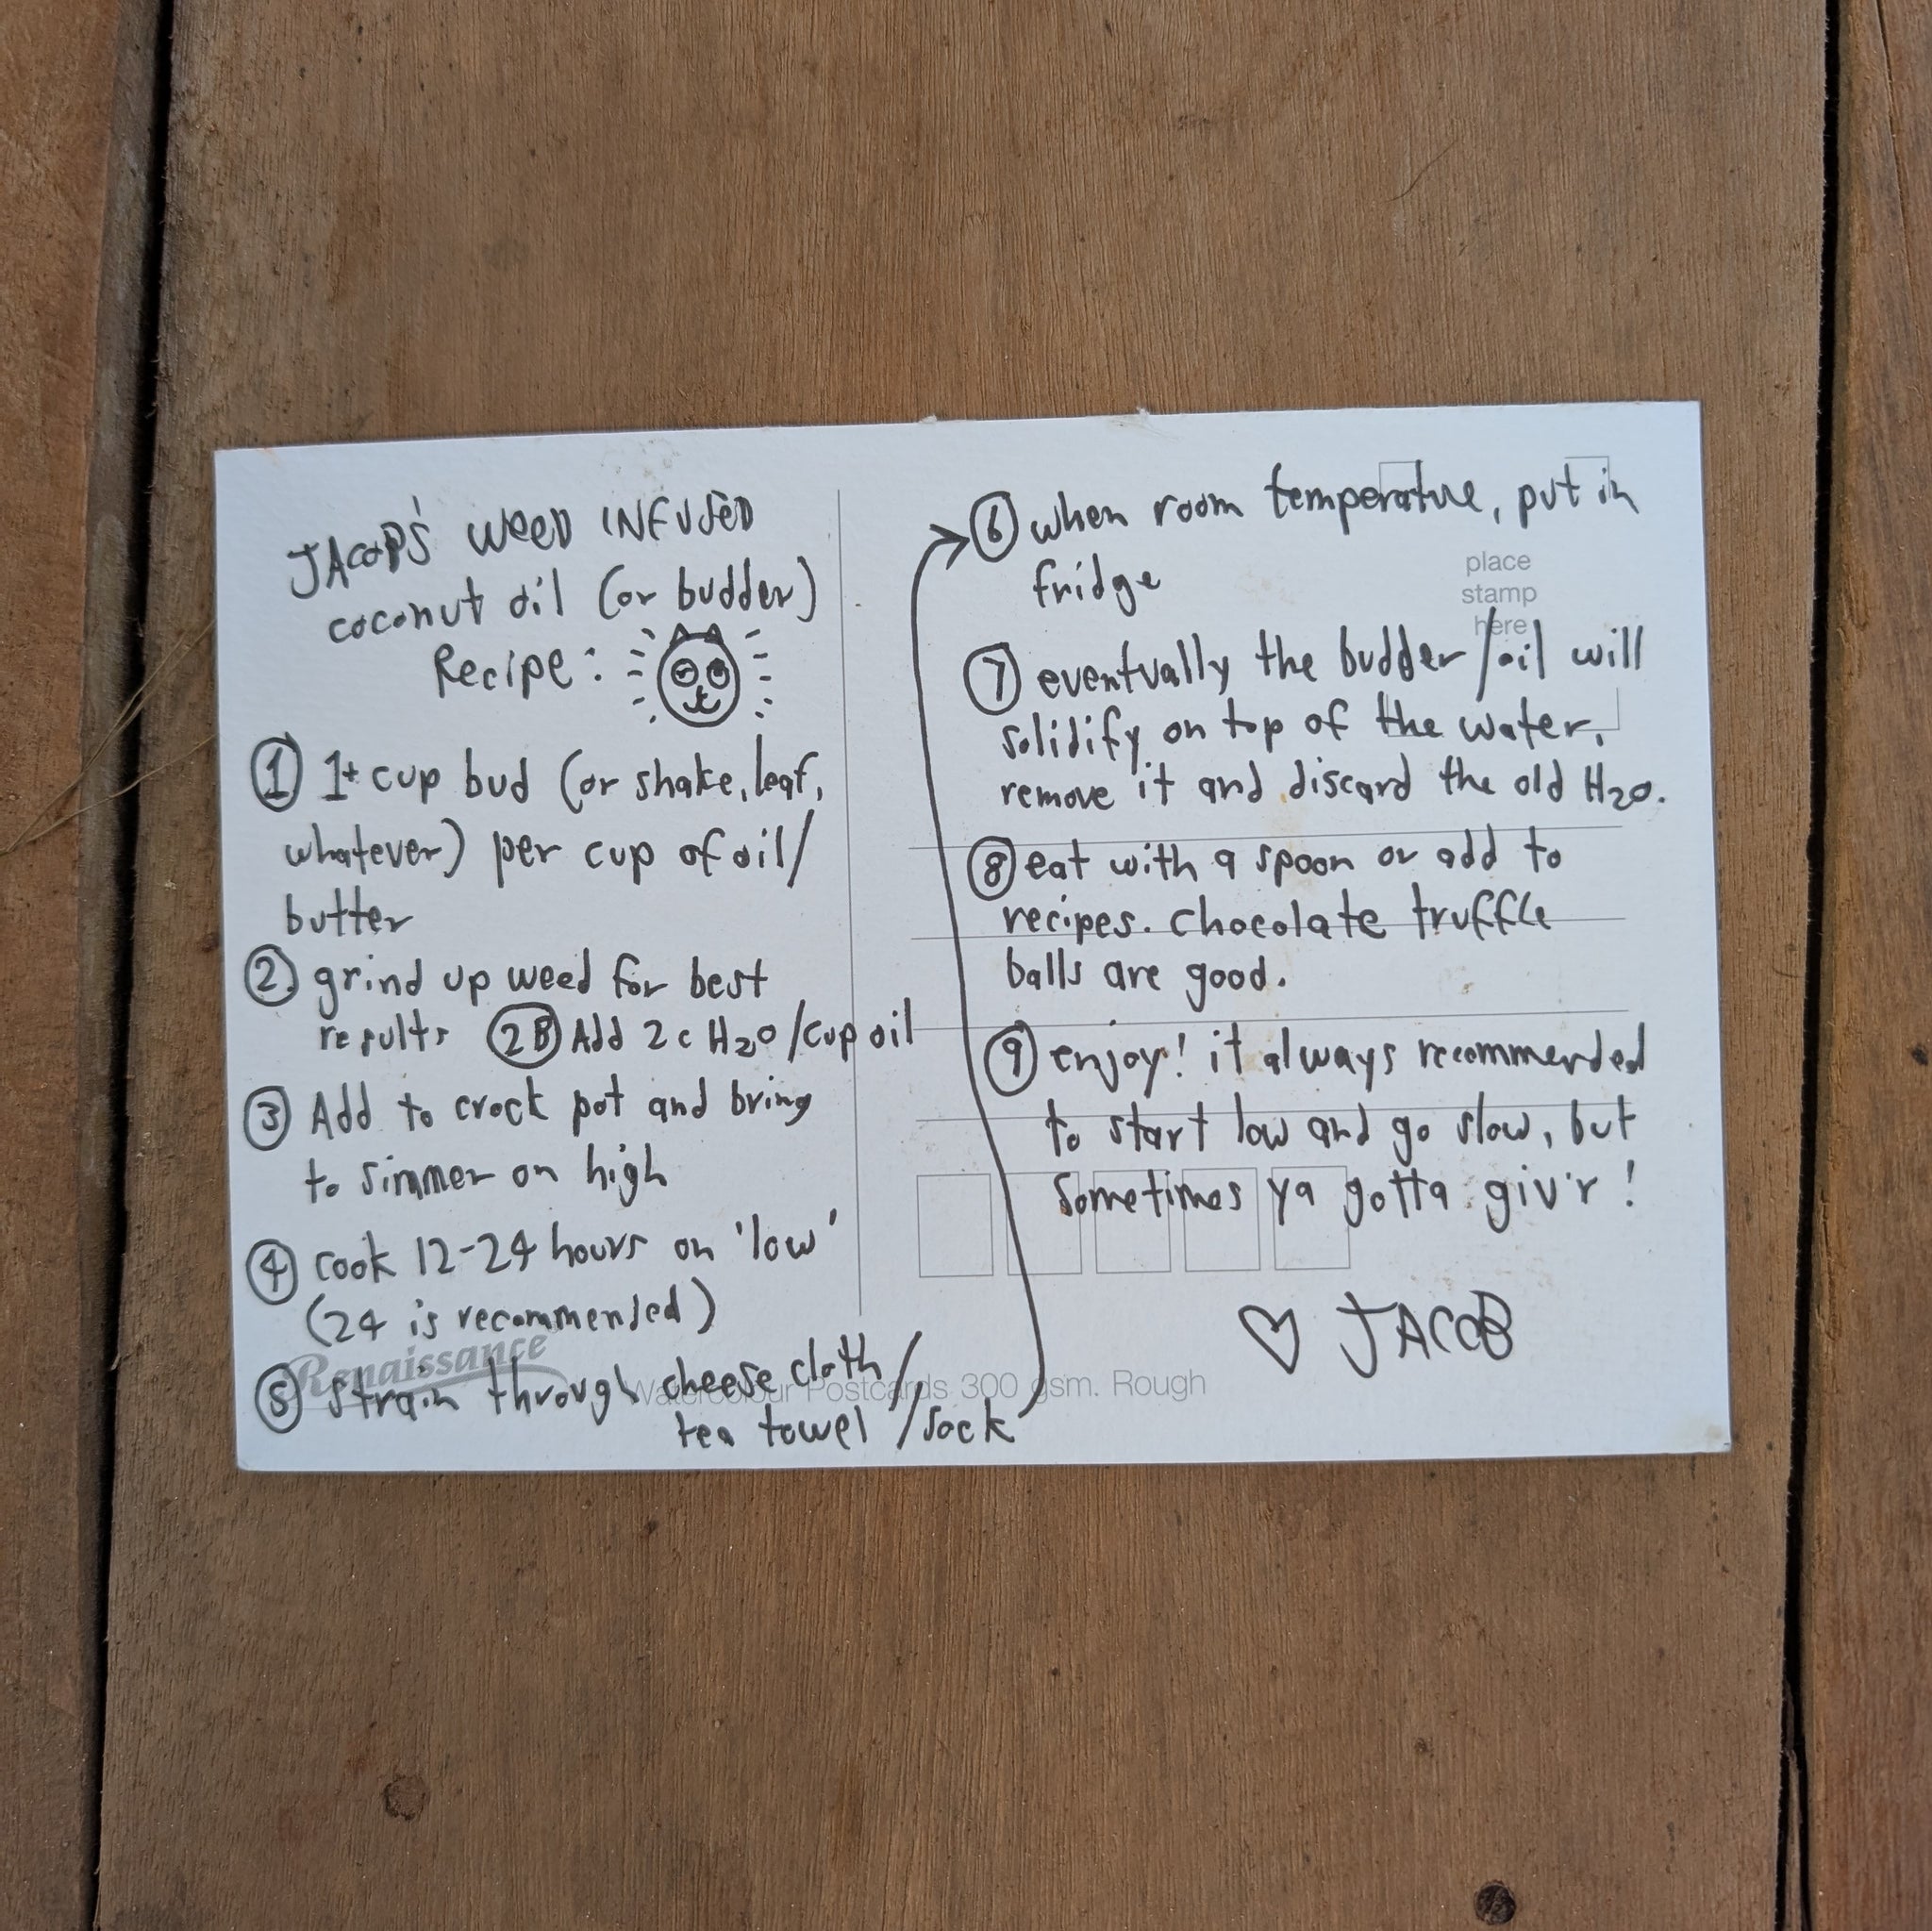 JACOB'S WEED INFUSED
coconut oil (or budder)
Recipe:
① 1+ cup bud (or shake, leaf,
whatever) per cup of oil/
butter
②. grind up weed for best
results ②B Add 2c H2O/cup oil
③ Add to crock pot and bring
to simmer on high
④ cook 12-24 hours on 'low'
(24 is recommended)
⑤ strain through cheese cloth/
tea towel/sock
Renaissance
Watercolour Postcards 300 gsm. Rough
⑥ when room temperature, put in
fridge
place
stamp
here
⑦ eventually the budder/oil will
solidify on top of the water,
remove it and discard the old H2O.
⑧ eat with a spoon or add to
recipes. Chocolate truffle
balls are good.
⑨ enjoy! it always recommended
to start low and go slow, but
sometimes ya gotta giv'r!
♡ JACOB